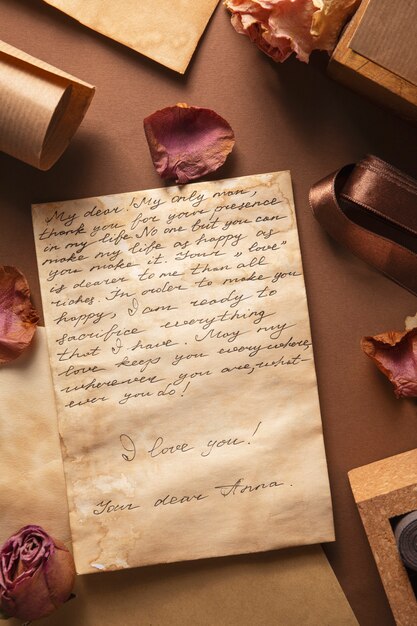 My dear! My only man,
thank you for your presence
in my life. No one but you can
make my life as happy as
you make it. Your „love"
is dearer to me than all
riches. In order to make you
happy, I am ready to
sacrifice everything
that I have. May my
love keeps you everywhere,
wherever you are, what
ever you do!
I love you!
Your dear Anna.